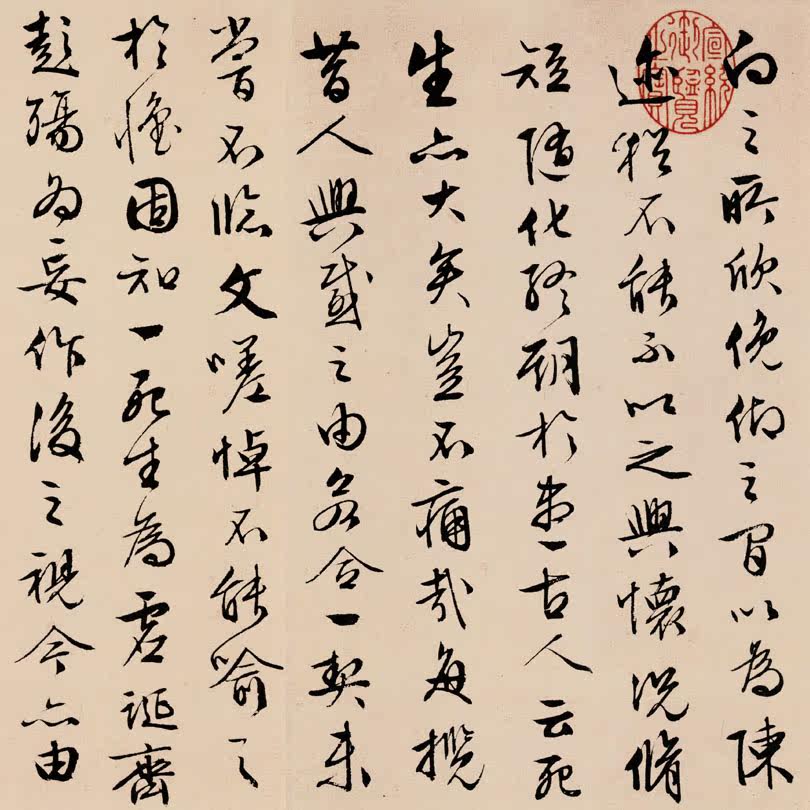 向之所欣俛仰之間以為陳
迹猶不能不以之興懷況脩
短隨化終期於盡古人云死
生亦大矣豈不痛哉每攬
昔人興感之由若合一契未
嘗不臨文嗟悼不能喻之
於懷固知一死生為虛誕齊
彭殤為妄作後之視今亦由
宣統
御覽
之寶